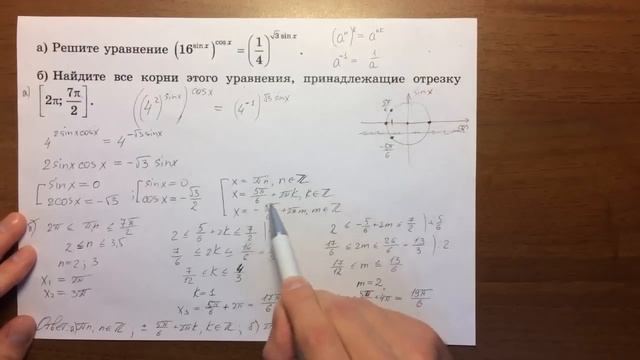 а) Решите уравнение (16^(sin x))^(cos x) = (1/4)^(√3 sin x).
(aⁿ)ᵏ = aⁿᵏ
a⁻¹ = 1/a
б) Найдите все корни этого уравнения, принадлежащие отрезку
[2π; 7π/2].
а) ((4²)^(sinx))^(cosx) = (4⁻¹)^(√3 sinx)
sinx
5π/6
-5π/6
4^(2sinxcosx) = 4^(-√3 sinx)
2sinxcosx = -√3 sinx
[ sinx = 0
2cosx = -√3 ;
[ sinx = 0
cosx = -√3/2
[ x = πn, n∈ℤ
x = 5π/6 + 2πk, k∈ℤ
x = - + 2πm, m∈ℤ
2π ≤ πn ≤ 7π/2
2 ≤ n ≤ 3,5
n = 2; 3
x₁ = 2π
x₂ = 3π
2 ≤ 5/6 + 2k ≤ 7/2
7/6 ≤ 2k ≤ 16/6
7/12 ≤ k ≤ 4/3
k = 1
x₃ = 5π/6 + 2π = 17π
2 ≤ -5/6 + 2m ≤ 7/2 | + 5/6
17/6 ≤ 2m ≤ 26/6 = 13/3 ) : 2
17/12 ≤ m ≤ 13/6
m = 2,
5π + 4π = 19π/6
Ответ: а) πn, n∈ℤ, ± 5π/6 + 2πk, k∈ℤ; б)